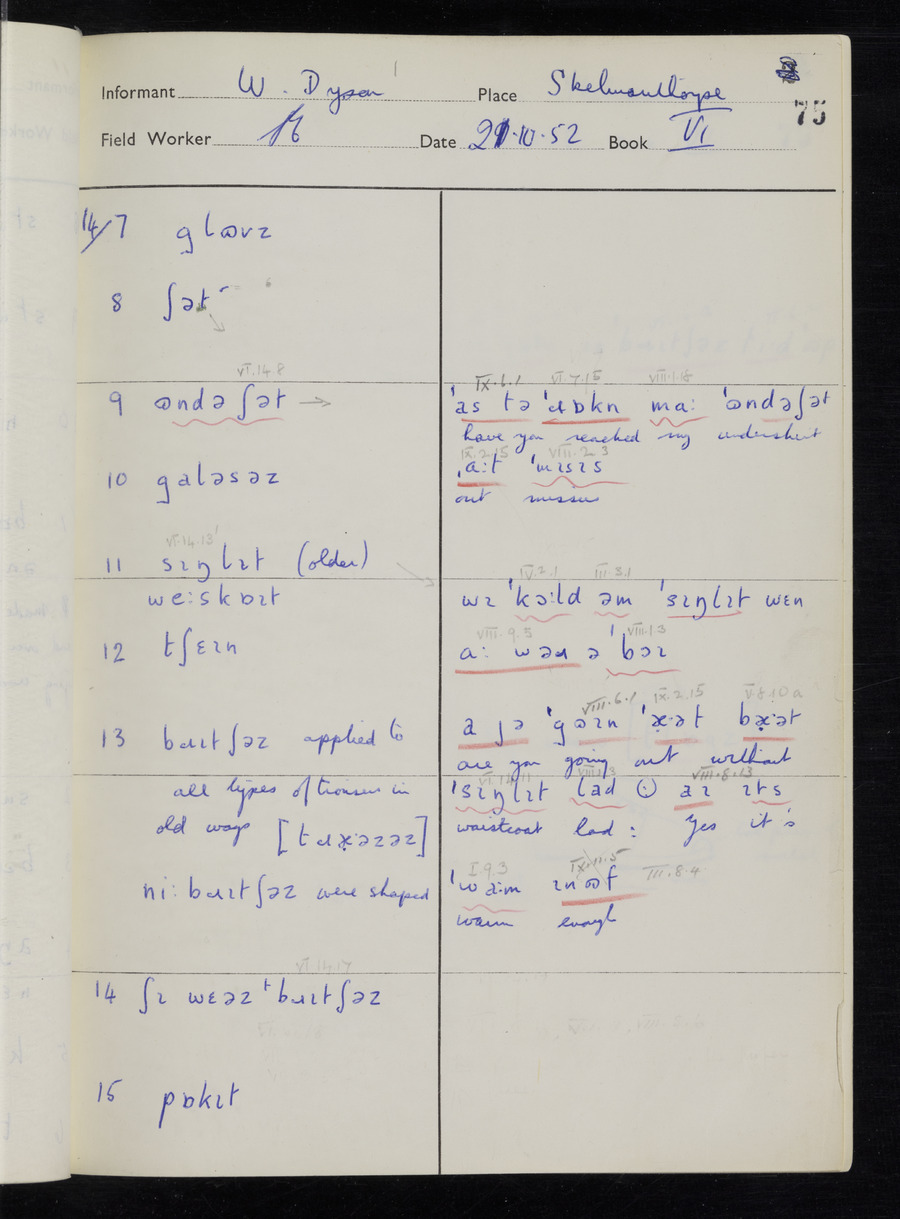 Informant W. Dyson Place Skelmanthorpe
75
Field Worker Date 21.10.52 Book VI
14/7 glɷvz
8 ʃət
VI.14.8
9 ɷndəʃət →
IX.6.1 VI.7.15 VIII.1.8
ˈas tə ˈɹɒkn ma: ˈɷndəʃət
have you reached my undershirt
IX.2.15 VIII.2.3
ˌa:t ˈmɪsɪs
out missus
10 galəsəz
VI.14.13
11 sɪŋlɪt (older)
we:skɒɪt
IV.2.1 III.3.1
wɪ ˈkɔ:ld əm ˈsɪŋlɪt wɛn
12 tʃɛɪn
VIII.9.5 VIII.1.3
a: wəɹ ə ˈbɔɪ
13 bɹɪtʃəz applied to
all types of trousers in
old ways [tɹaəzəz]
ni:bɹɪtʃəz were shaped
VIII.6.1 IX.2.15 V.8.10a
a jə ˈgəɪn ˈæət bæət
are you going out without
VI.14.11 VIII.1.3 VIII.8.13
ˈsɪŋlɪt lad (:) aɪ ɪts
waistcoat lad : Yes it's
I.9.3 IX.11.5 III.8.4
ˈwa:m ɪnɷf
warm enough
VI.14.17
14 ʃɪ wɛəz ᵗbɹɪtʃəz
15 pɒkɪt